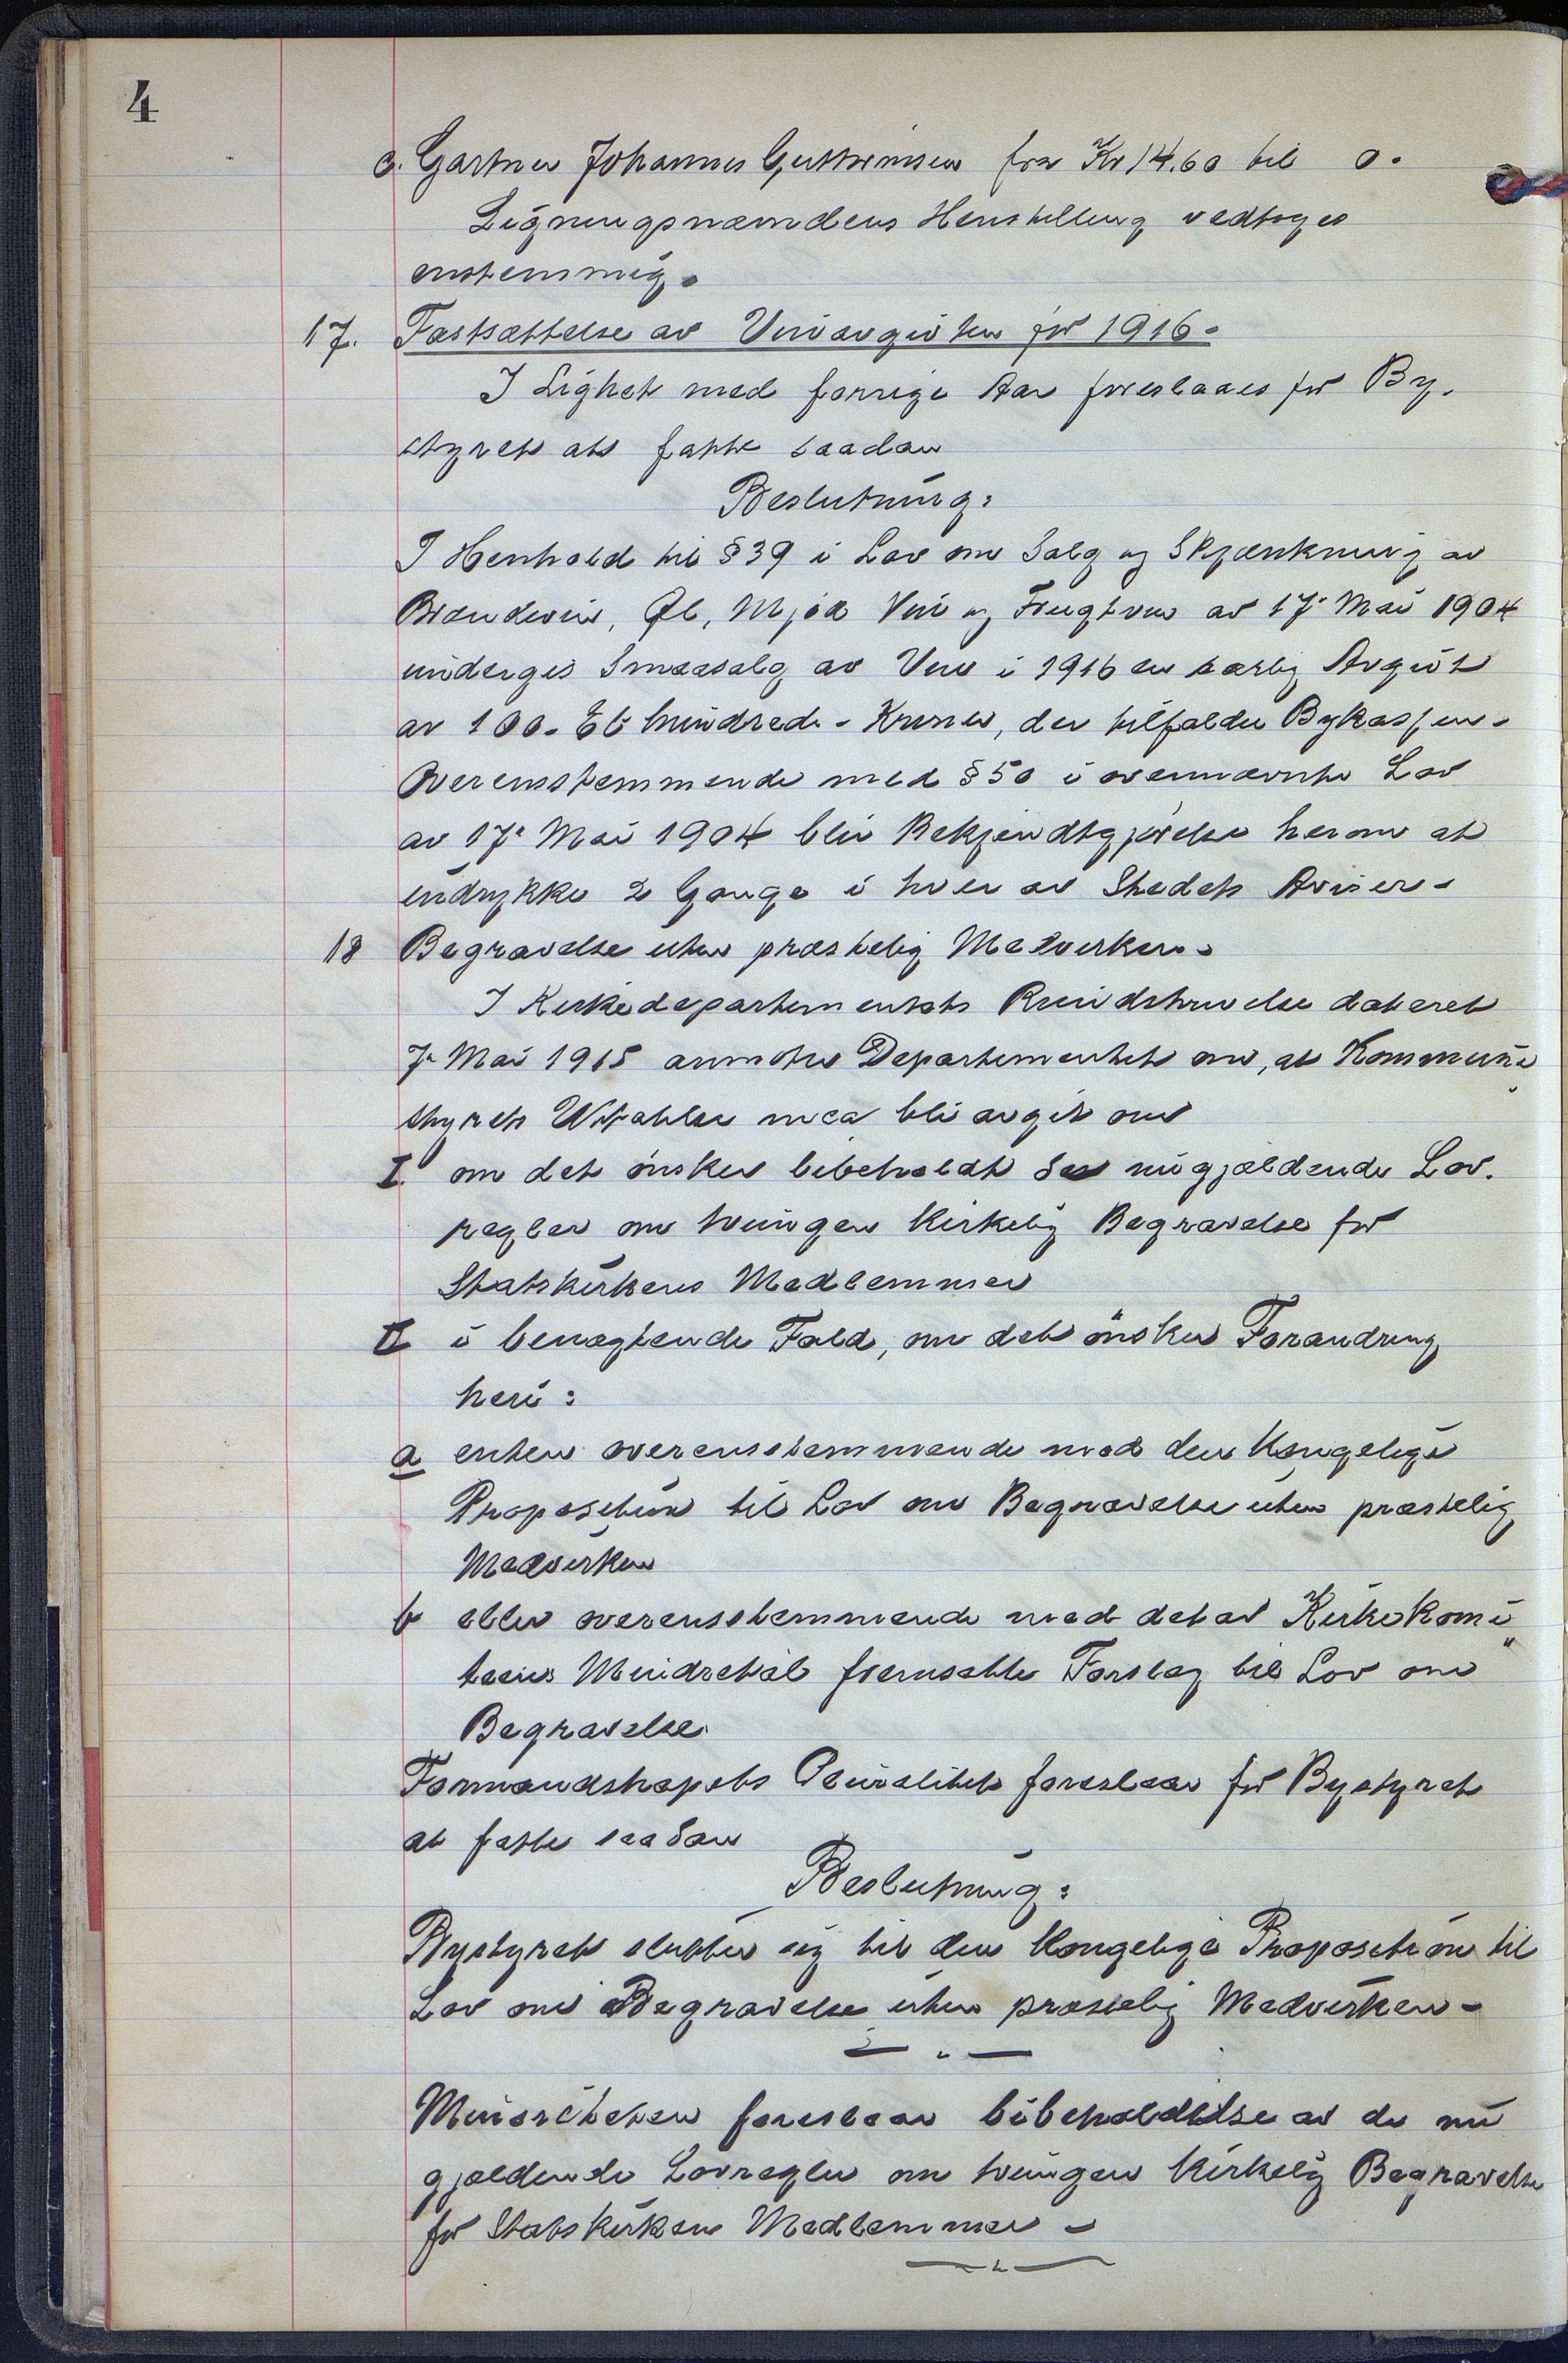 4
c. Gartner Johannes Guttormsen fra Kr 14.60 til 0.
Ligningsnævndens Henstilling vedtoges
enstemmig.
17. Fastsættelse av Vinavgiften for 1916.
I Lighet med forrige Aar foreslaaes for By-
styret at fatte saadan
Beslutning:
I Henhold til § 39 i Lov om Salg og Skjænkning av
Brændevin, Øl, Mjød Vin og Frugtvin av 17. Mai 1904
undergis Smaasalg av Vin i 1916 en særlig Avgift
av 100. Et hundrede - Kroner, der tilfalder Bykassen.
Overensstemmende med § 50 i ovennævnte Lov
av 17. Mai 1904 blir Bekjendtgjørelse herom at
indrykke 2 Gange i hver av Stedets Aviser.
18 Begravelse uten præstelig Medvirken.
I Kirkedepartementets Rundskrivelse dateret
7. Mai 1915 anmoter Departementet om, at Kommune
styrets Uttalelse maa bli avgit om
I. om det ønskes bibeholdt de nugjældende Lov.
regler om tvungen kirkelig Begravelse for
Statskirkens Medlemmer
II i benægtende Fald, om det ønskes Forandring
heri:
a enten overensstemmende med den Kongelige
Proposition til Lov om Begravelse uten præstelig
Medvirken
b eller overensstemmende med det av Kirkekomi
teens Mindretal fremsatte Forslag til Lov om
Begravelse
Formandskapets Pluralitet foreslaar for Bystyret
at fatte saadan
Beslutning:
Bystyret slutter sig til den kongelige Proposition til
Lov om Begravelse uten præstelig Medvirken -
Minoriteten foreslaar bibeholdelse av de nu
gjældende Lovregler om tvungen kirkelig Begravelse
for Statskirkens Medlemmer -